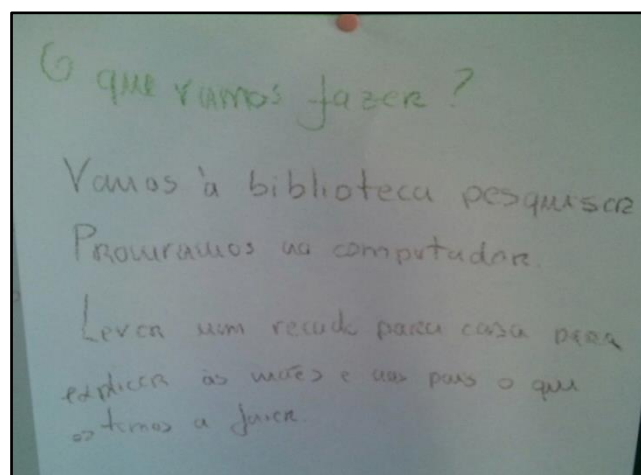 O que vamos fazer?
Vamos à biblioteca pesquisar
Procuramos no computador.
Levar um recado para casa para
explicar às mães e aos pais o que
estamos a fazer.